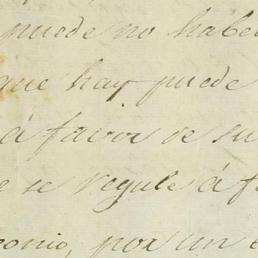 puede no habe
que hay puede
á favor de su
e se regule á f
onio, por un e